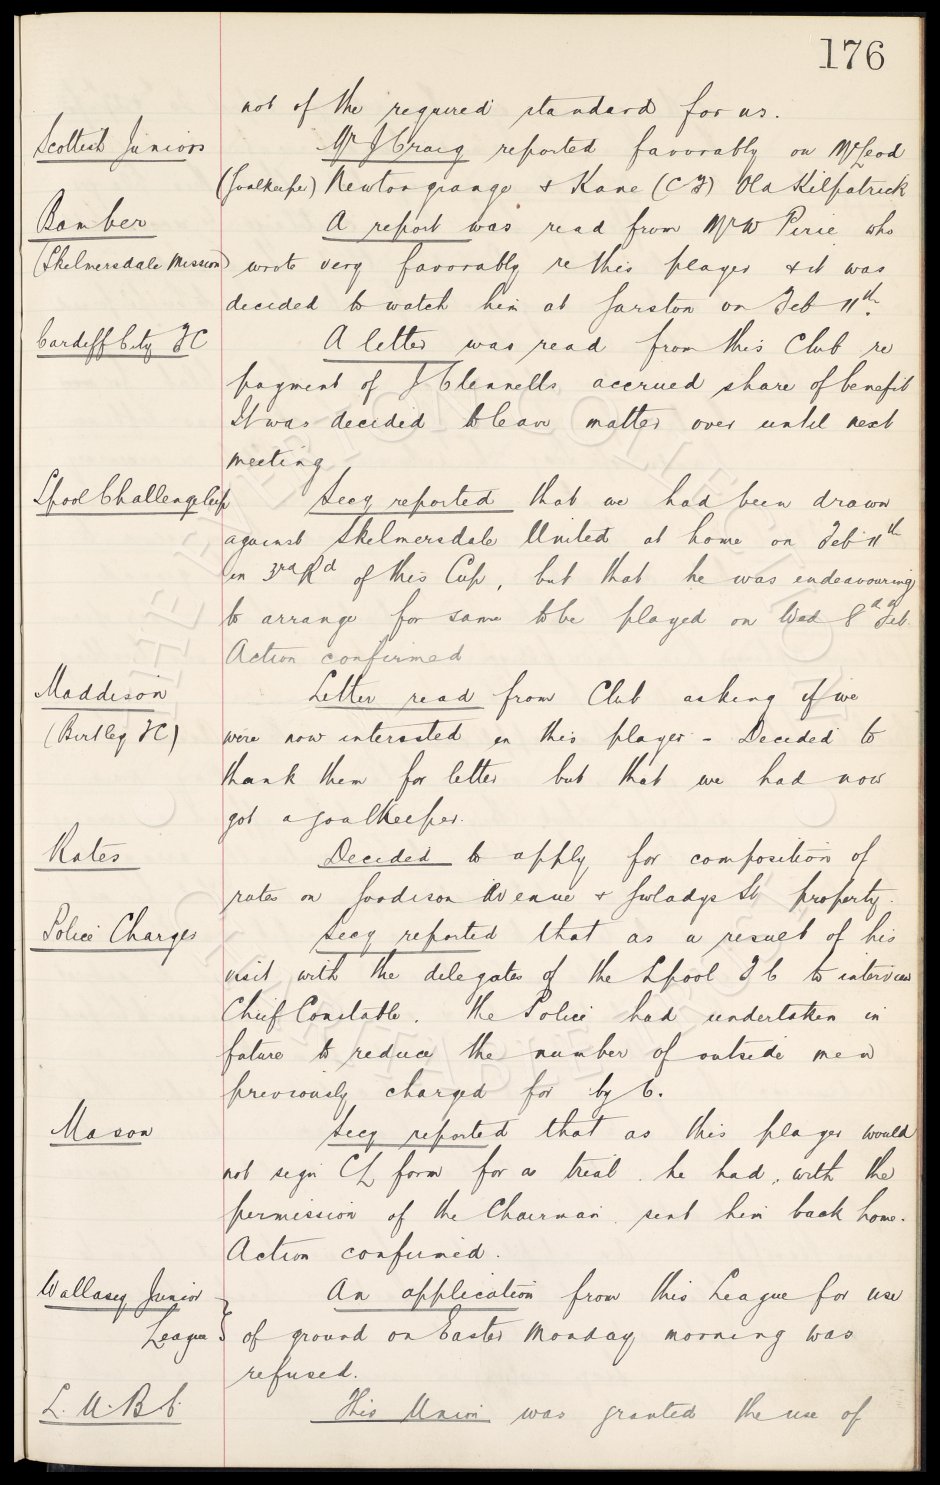 176
not of the required standard for us.
Scottish Juniors
Mr J Craig reported favorably on McLeod
(Goalkeeper) Newtongrange & Kane (CF) Old Kilpatrick
Bamber
A report was read from Mr W Pirie who
(Skelmersdale Mission) wrote very favorably re this player & it was
decided to watch him at Garston on Feb 11th.
Cardiff City FC
A letter was read from this Club re
payment of J Clennells accrued share of benefit
It was decided to leave matter over until next
meeting
Lpool Challenge Cup
Secy reported that we had been drawn
against Skelmersdale United at home on Feb 11th
in 3rd Rd of this Cup, but that he was endeavouring
to arrange for same to be played on Wed 8th Feb.
Action confirmed
Maddison
Letter read from Club asking if we
(Birtley FC)
were now interested in this player - Decided to
thank them for letter but that we had now
got a goalkeeper.
Rates
Decided to apply for composition of
rates on Goodison Avenue & Gwladys St property.
Police Charges
Secy reported that as a result of his
visit with the delegates of the Lpool F C to interview
Chief Constable. the Police had undertaken in
future to reduce the number of outside men
previously charged for by C.
Mason
Secy reported that as this player would
not sign CL form for a trial he had, with the
permission of the Chairman sent him back home.
Action confirmed.
Wallasey Junior
An application from this League for use
League
of ground on Easter Monday morning was
refused.
L. U. B C.
This Union was granted the use of